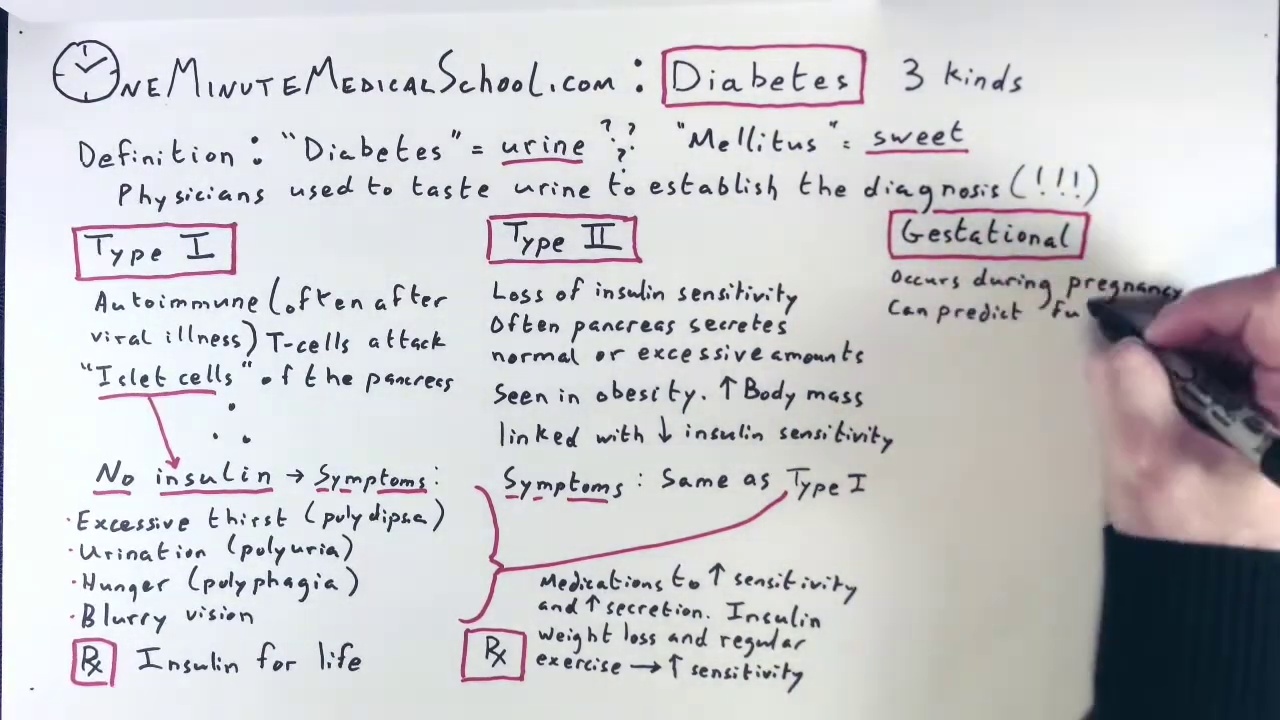 OneMinuteMedicalSchool.com : Diabetes 3 kinds
Definition : "Diabetes" = urine ? ? ? "Mellitus" = sweet
Physicians used to taste urine to establish the diagnosis (!!!)
Type I
Autoimmune (often after
viral illness) T-cells attack
"Islet cells" of the pancreas
No insulin → Symptoms :
· Excessive thirst (polydipsa)
· Urination (polyuria)
· Hunger (polyphagia)
· Blurry vision
Rx Insulin for life
Type II
Loss of insulin sensitivity
Often pancreas secretes
normal or excessive amounts
Seen in obesity. ↑ Body mass
linked with ↓ insulin sensitivity
Symptoms : Same as Type I
Rx
Medications to ↑ sensitivity
and ↑ secretion. Insulin
weight loss and regular
exercise → ↑ sensitivity
Gestational
Occurs during pregnancy
Can predict fu